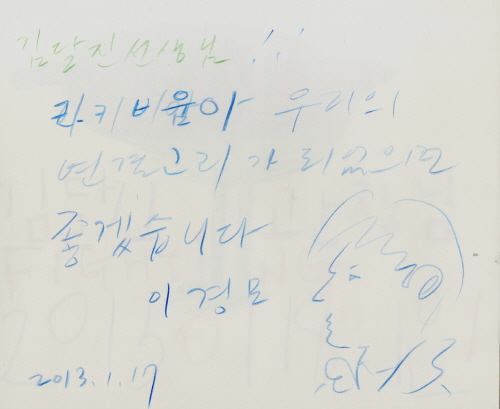 김달진선생님 !!
라키비움아 우리의
연결고리가 되었으면
좋겠습니다
이경모
2013.1.17